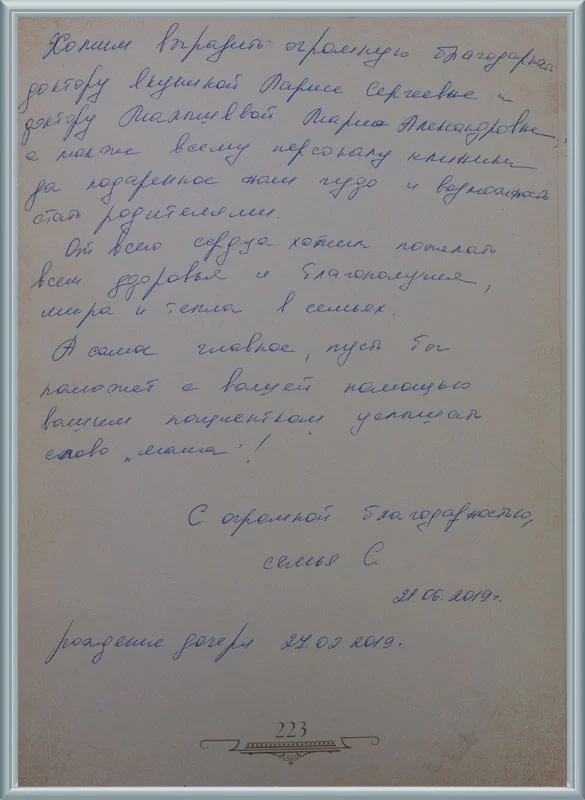 Хотим выразить огромную благодарность
доктору Якуниной Ларисе Сергеевне и
доктору Малышевой Марии Александровне,
а также всему персоналу клиники
за подаренное нам чудо и возможность
стать родителями.
От всего сердца хотим пожелать
всем здоровья и благополучия,
мира и тепла в семьях.
А самое главное, пусть Бог
поможет с вашей помощью
вашим пациенткам услышать
слово „мама"!
С огромной благодарностью,
семья С.
21.06.2019г.
рождение дочери 27.02 2019.
223